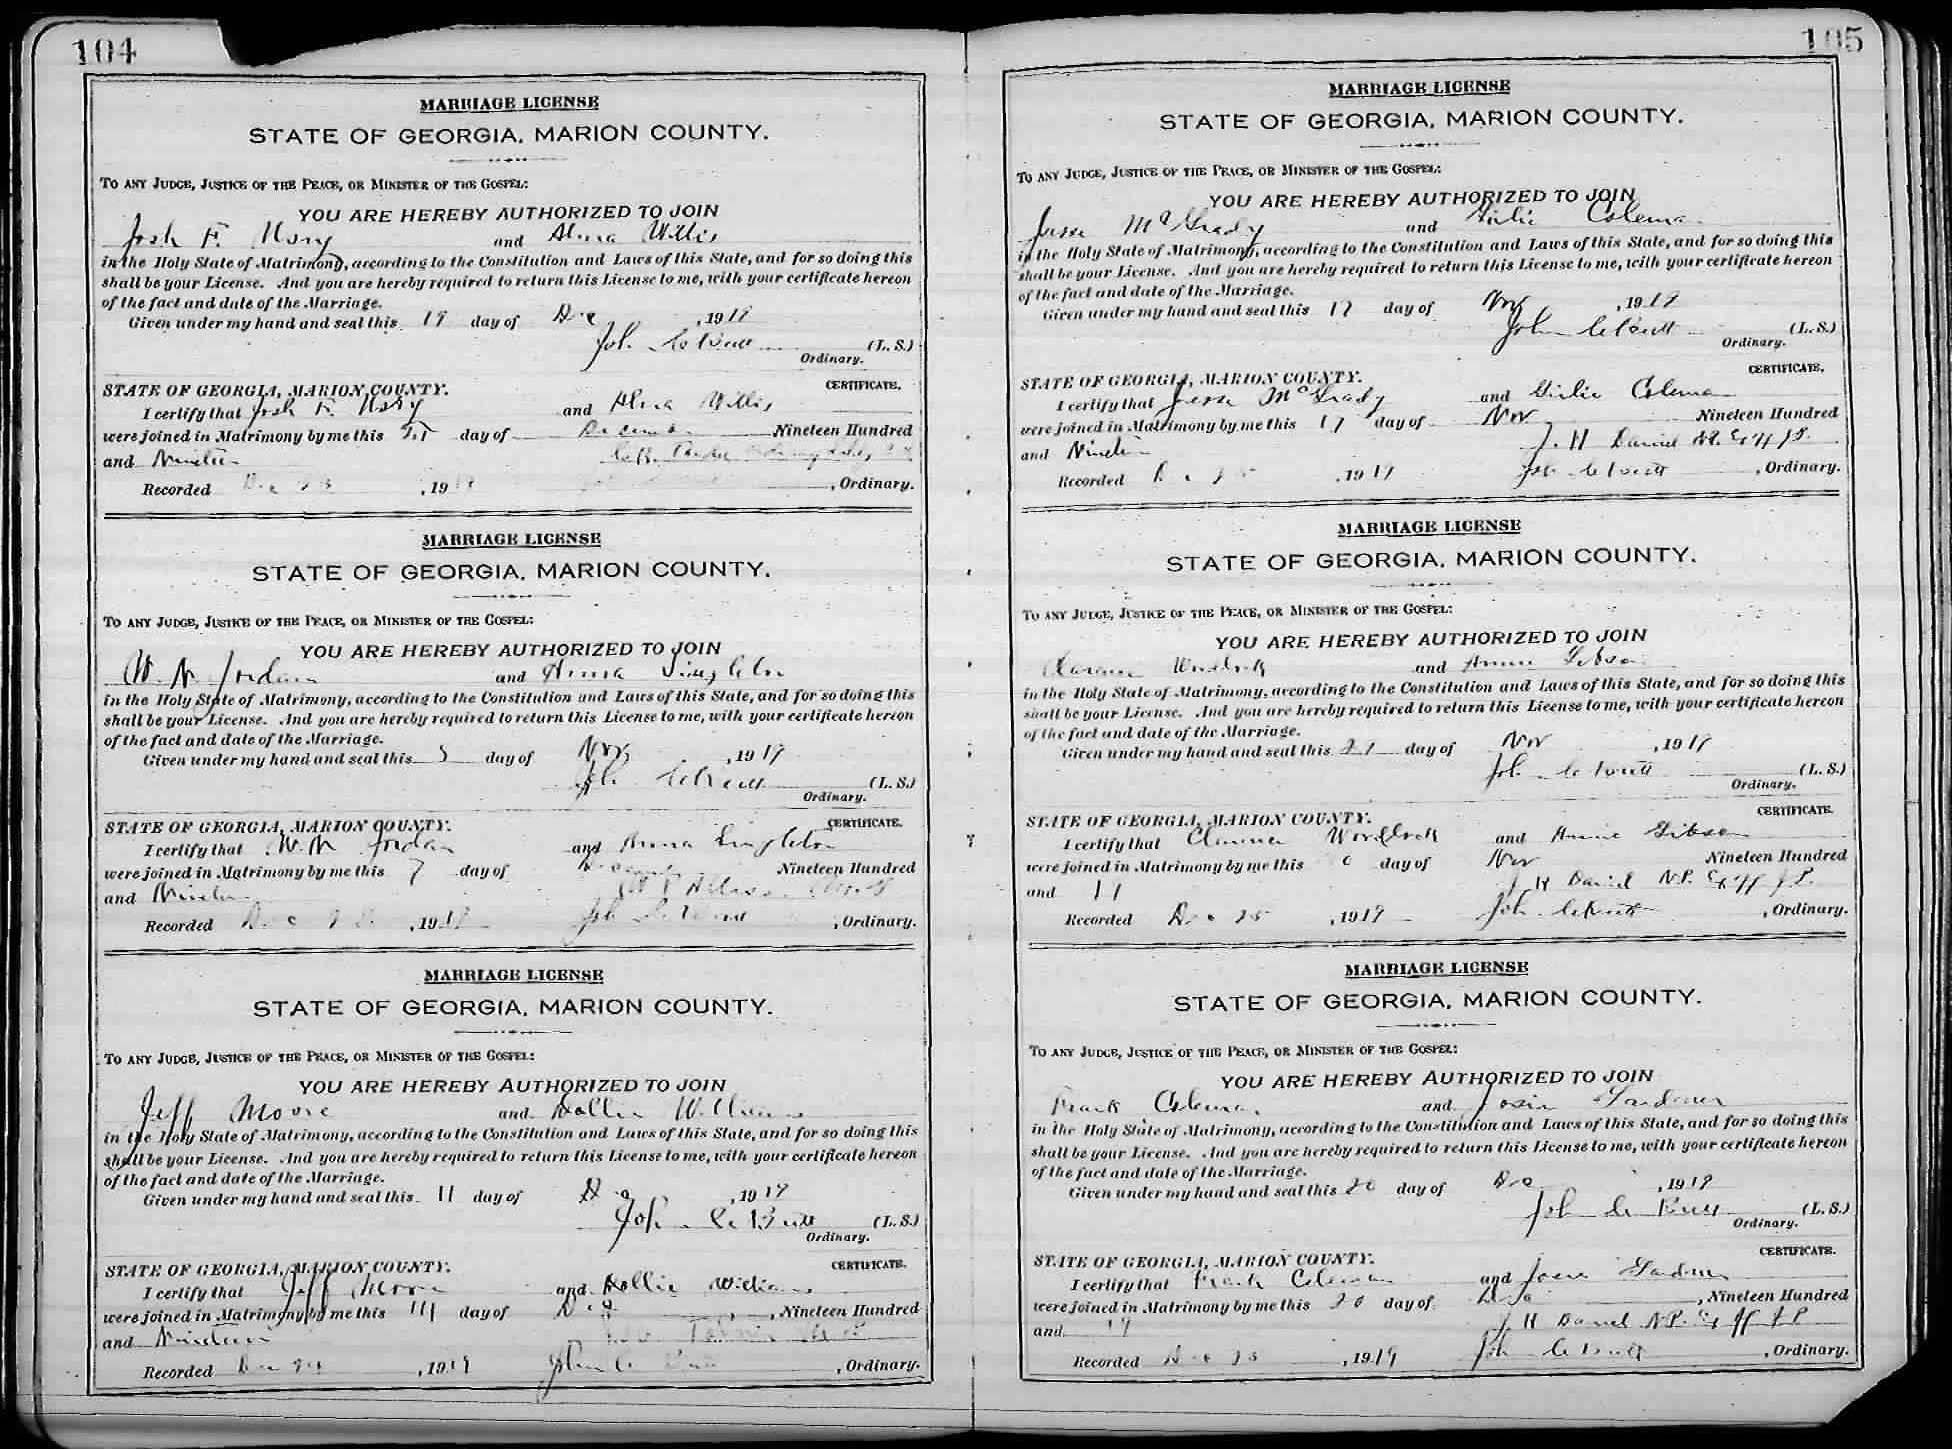 104
MARRIAGE LICENSE
STATE OF GEORGIA, MARION COUNTY.
TO ANY JUDGE, JUSTICE OF THE PEACE, OR MINISTER OF THE GOSPEL:
YOU ARE HEREBY AUTHORIZED TO JOIN
Josh F. and Alma Willis
in the Holy State of Matrimony, according to the Constitution and Laws of this State, and for so doing this
shall be your License. And you are hereby required to return this License to me, with your certificate hereon
of the fact and date of the Marriage.
Given under my hand and seal this 19 day of Dec, 1919
John C Butt (L. S.)
Ordinary.
CERTIFICATE.
STATE OF GEORGIA, MARION COUNTY.
I certify that Josh F. and Alma Willis
were joined in Matrimony by me this day of December Nineteen Hundred
and Nineteen
Recorded Dec, 1919, Ordinary.
MARRIAGE LICENSE
STATE OF GEORGIA, MARION COUNTY.
TO ANY JUDGE, JUSTICE OF THE PEACE, OR MINISTER OF THE GOSPEL:
YOU ARE HEREBY AUTHORIZED TO JOIN
W. N. Jordan and Anna Singleton
in the Holy State of Matrimony, according to the Constitution and Laws of this State, and for so doing this
shall be your License. And you are hereby required to return this License to me, with your certificate hereon
of the fact and date of the Marriage.
Given under my hand and seal this 5 day of Nov, 1919
John C Butt (L. S.)
Ordinary.
CERTIFICATE.
STATE OF GEORGIA, MARION COUNTY.
I certify that W. N. Jordan and Anna Singleton
were joined in Matrimony by me this 7 day of December Nineteen Hundred
and Nineteen
Recorded Dec, 1919 John C Butt, Ordinary.
MARRIAGE LICENSE
STATE OF GEORGIA, MARION COUNTY.
TO ANY JUDGE, JUSTICE OF THE PEACE, OR MINISTER OF THE GOSPEL:
YOU ARE HEREBY AUTHORIZED TO JOIN
Jeff Moore and Hollie Williams
in the Holy State of Matrimony, according to the Constitution and Laws of this State, and for so doing this
shall be your License. And you are hereby required to return this License to me, with your certificate hereon
of the fact and date of the Marriage.
Given under my hand and seal this 11 day of Dec, 1919
John C Butt (L. S.)
Ordinary.
CERTIFICATE.
STATE OF GEORGIA, MARION COUNTY.
I certify that Jeff Moore and Hollie Williams
were joined in Matrimony by me this day of Dec, Nineteen Hundred
and Nineteen
Recorded Dec, 1919 John C Butt, Ordinary.
105
MARRIAGE LICENSE
STATE OF GEORGIA, MARION COUNTY.
TO ANY JUDGE, JUSTICE OF THE PEACE, OR MINISTER OF THE GOSPEL:
YOU ARE HEREBY AUTHORIZED TO JOIN
Jesse McGrady and Girlie Coleman
in the Holy State of Matrimony, according to the Constitution and Laws of this State, and for so doing this
shall be your License. And you are hereby required to return this License to me, with your certificate hereon
of the fact and date of the Marriage.
Given under my hand and seal this 17 day of Nov, 1919
John C Butt (L. S.)
Ordinary.
CERTIFICATE.
STATE OF GEORGIA, MARION COUNTY.
I certify that Jesse McGrady and Girlie Coleman
were joined in Matrimony by me this 17 day of Nov Nineteen Hundred
and Nineteen J. H Daniel N.P. J.P.
Recorded Dec 25, 1919 John C Butt, Ordinary.
MARRIAGE LICENSE
STATE OF GEORGIA, MARION COUNTY.
TO ANY JUDGE, JUSTICE OF THE PEACE, OR MINISTER OF THE GOSPEL:
YOU ARE HEREBY AUTHORIZED TO JOIN
Clarence Woodlock and Annie Gibson
in the Holy State of Matrimony, according to the Constitution and Laws of this State, and for so doing this
shall be your License. And you are hereby required to return this License to me, with your certificate hereon
of the fact and date of the Marriage.
Given under my hand and seal this 21 day of Nov, 1919
John C Butt (L. S.)
Ordinary.
CERTIFICATE.
STATE OF GEORGIA, MARION COUNTY.
I certify that Clarence Woodlock and Annie Gibson
were joined in Matrimony by me this day of Nov Nineteen Hundred
and 19 J H Daniel N.P. J.P.
Recorded Dec 25, 1919 John C Butt, Ordinary.
MARRIAGE LICENSE
STATE OF GEORGIA, MARION COUNTY.
TO ANY JUDGE, JUSTICE OF THE PEACE, OR MINISTER OF THE GOSPEL:
YOU ARE HEREBY AUTHORIZED TO JOIN
Frank Coleman and Josie Gardner
in the Holy State of Matrimony, according to the Constitution and Laws of this State, and for so doing this
shall be your License. And you are hereby required to return this License to me, with your certificate hereon
of the fact and date of the Marriage.
Given under my hand and seal this 20 day of Dec, 1919
John C Butt (L. S.)
Ordinary.
CERTIFICATE.
STATE OF GEORGIA, MARION COUNTY.
I certify that Frank Coleman and Josie Gardner
were joined in Matrimony by me this 20 day of Dec, Nineteen Hundred
and 19 J H Daniel N.P. J.P.
Recorded Dec 25, 1919 John C Butt, Ordinary.